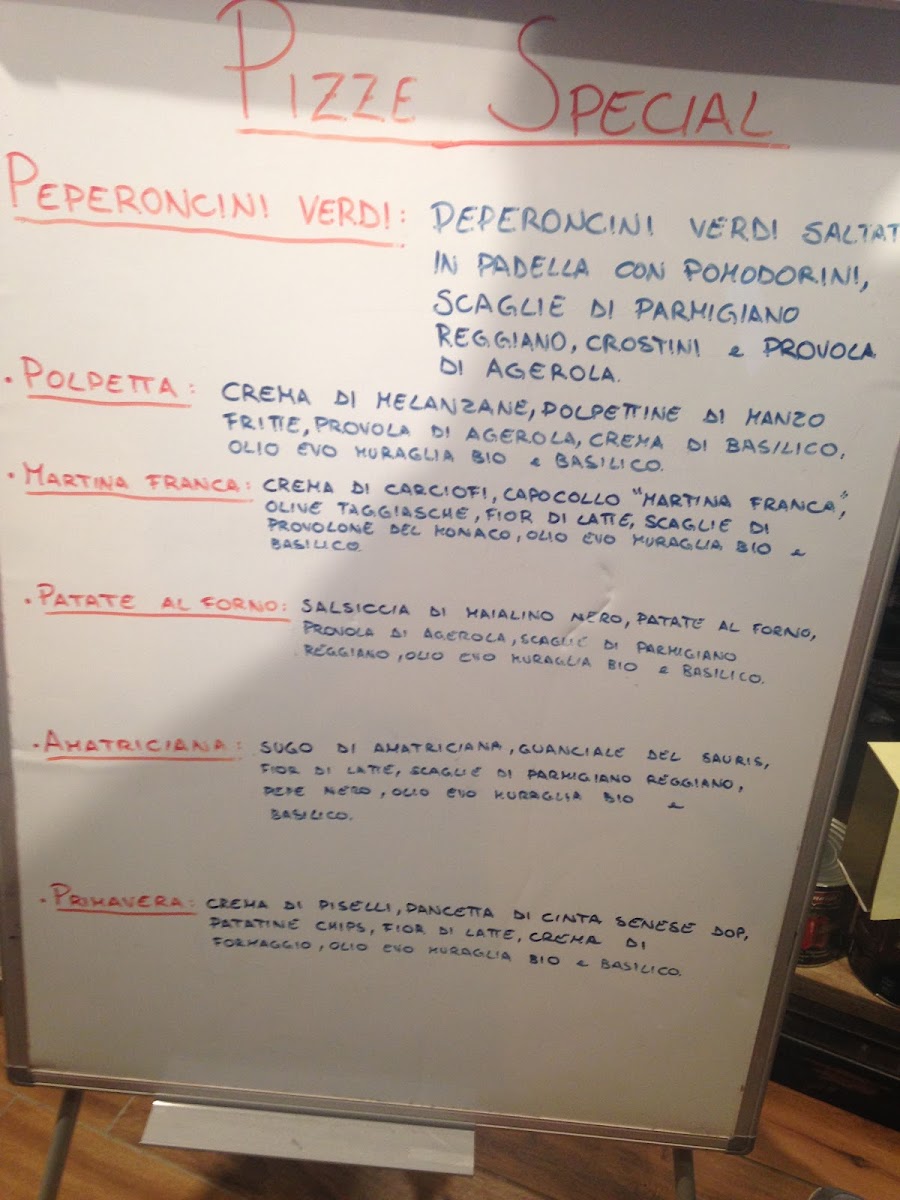 PIZZE SPECIAL
PEPERONCINI VERDI: PEPERONCINI VERDI SALTAT
IN PADELLA CON POMODORINI,
SCAGLIE DI PARMIGIANO
REGGIANO, CROSTINI e PROVOLA
DI AGEROLA.
• POLPETTA: CREMA DI MELANZANE, POLPETTINE DI MANZO
FRITTE, PROVOLA DI AGEROLA, CREMA DI BASILICO,
OLIO EVO MURAGLIA BIO e BASILICO.
• MARTINA FRANCA: CREMA DI CARCIOFI, CAPOCOLLO "MARTINA FRANCA",
OLIVE TAGGIASCHE, FIOR DI LATTE, SCAGLIE DI
PROVOLONE DEL MONACO, OLIO EVO MURAGLIA BIO e
BASILICO.
• PATATE AL FORNO: SALSICCIA DI MAIALINO NERO, PATATE AL FORNO,
PROVOLA DI AGEROLA, SCAGLIE DI PARMIGIANO
REGGIANO, OLIO EVO MURAGLIA BIO e BASILICO.
• AMATRICIANA: SUGO DI AMATRICIANA, GUANCIALE DEL SAURIS,
FIOR DI LATTE, SCAGLIE DI PARMIGIANO REGGIANO,
PEPE NERO, OLIO EVO MURAGLIA BIO e
BASILICO.
• PRIMAVERA: CREMA DI PISELLI, PANCETTA DI CINTA SENESE DOP,
PATATINE CHIPS, FIOR DI LATTE, CREMA DI
FORMAGGIO, OLIO EVO MURAGLIA BIO e BASILICO.